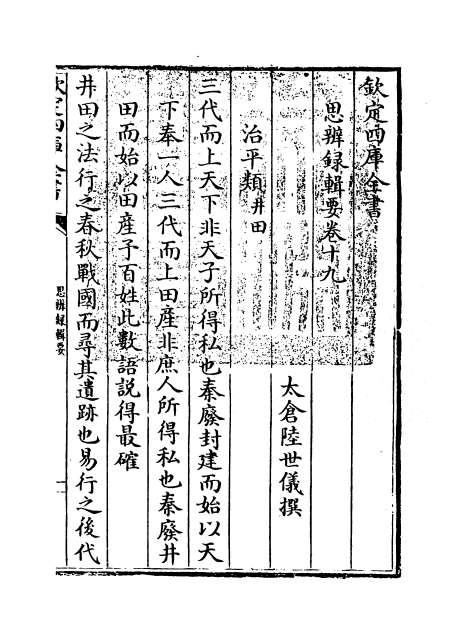 欽定四庫全書
思辨録輯要卷十九
太倉陸世儀撰
治平類井田
三代而上天下非天子所得私也秦廢封建而始以天
下奉一人三代而上田産非庶人所得私也秦廢井
田而始以田産予百姓此數語説得最確
井田之法行之春秋戰國而尋其遺跡也易行之後代
欽定四庫全書
思辨録輯要
一